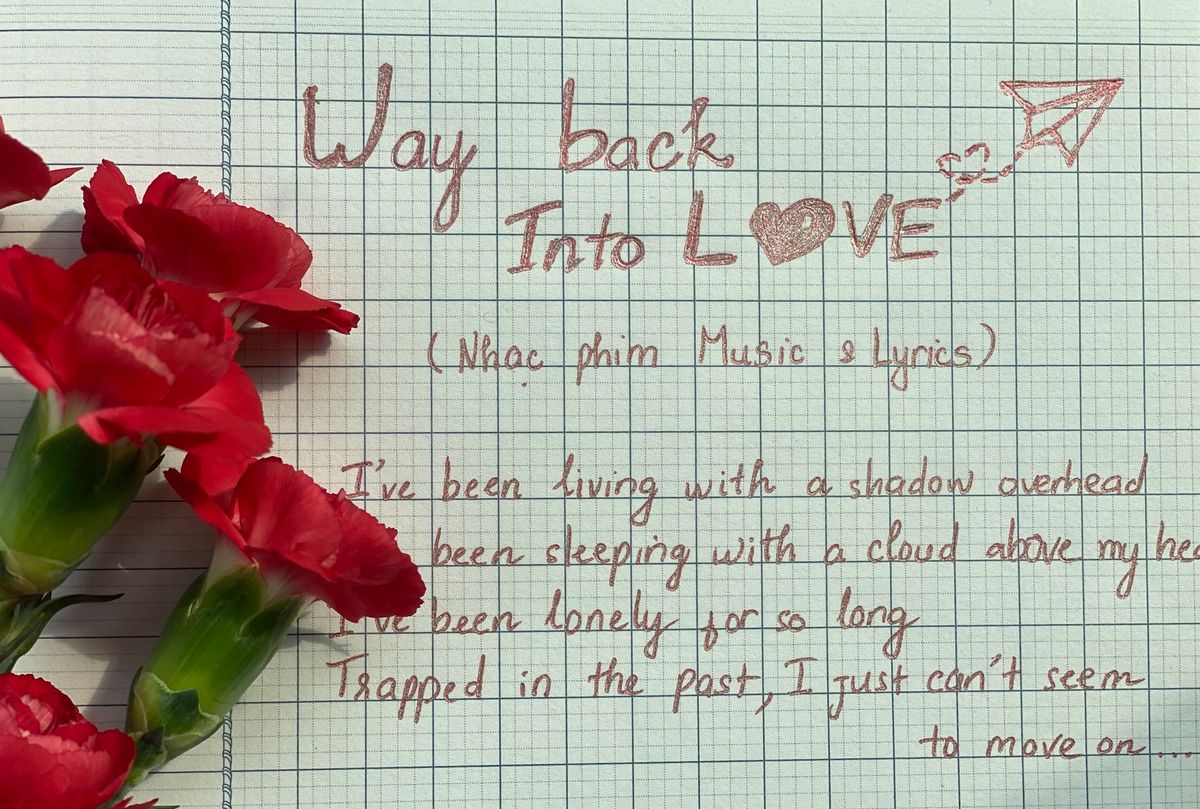 Way back
Into LOVE
(Nhạc phim Music & Lyrics)
I've been living with a shadow overhead
been sleeping with a cloud above my
I've been lonely for so long
Trapped in the past, I just can't seem
to move on...